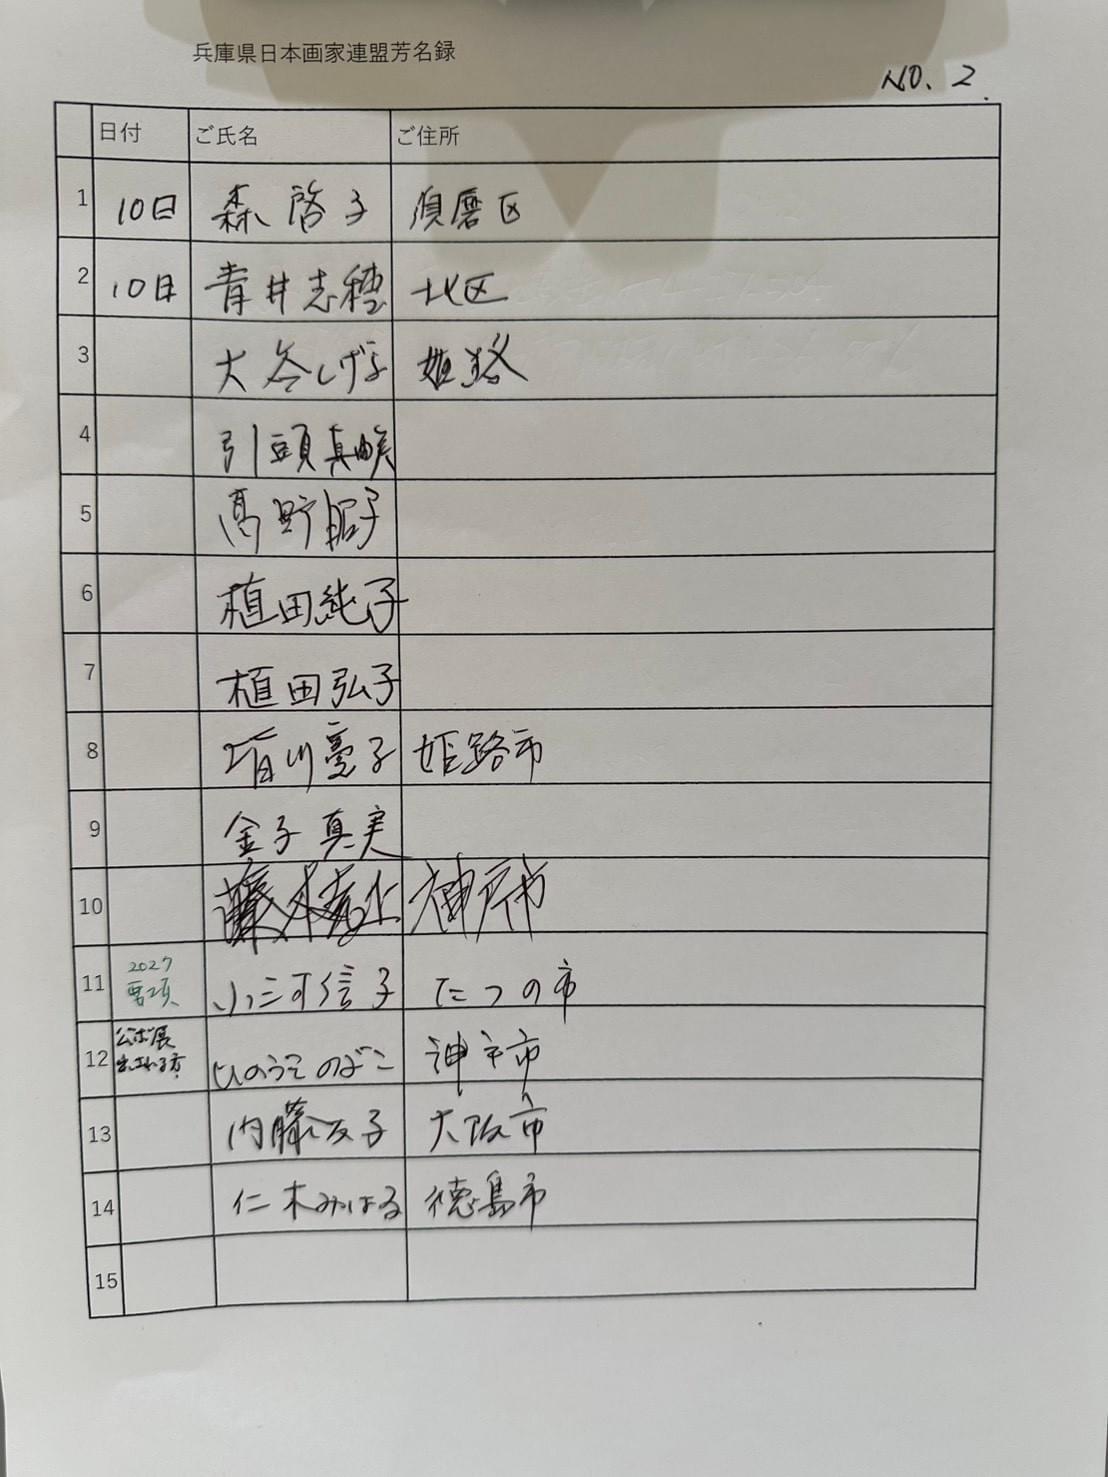 兵庫県日本画家連盟芳名録
NO. 2.
日付 ご氏名 ご住所
1 10日 森 啓子 須磨区
2 10日 青井志穂 北区
3 大谷しげ子 姫路
4 引頭真
5 高野昭子
6 植田純子
7 植田弘子
8 川 子 姫路市
9 金子真実
10 藤 神戸市
11 2027 要項 小河信子 たつの市
12 公ぼ展 ひのうえ のぶこ 神戸市
13 内藤友子 大阪市
14 仁木みはる 徳島市
15